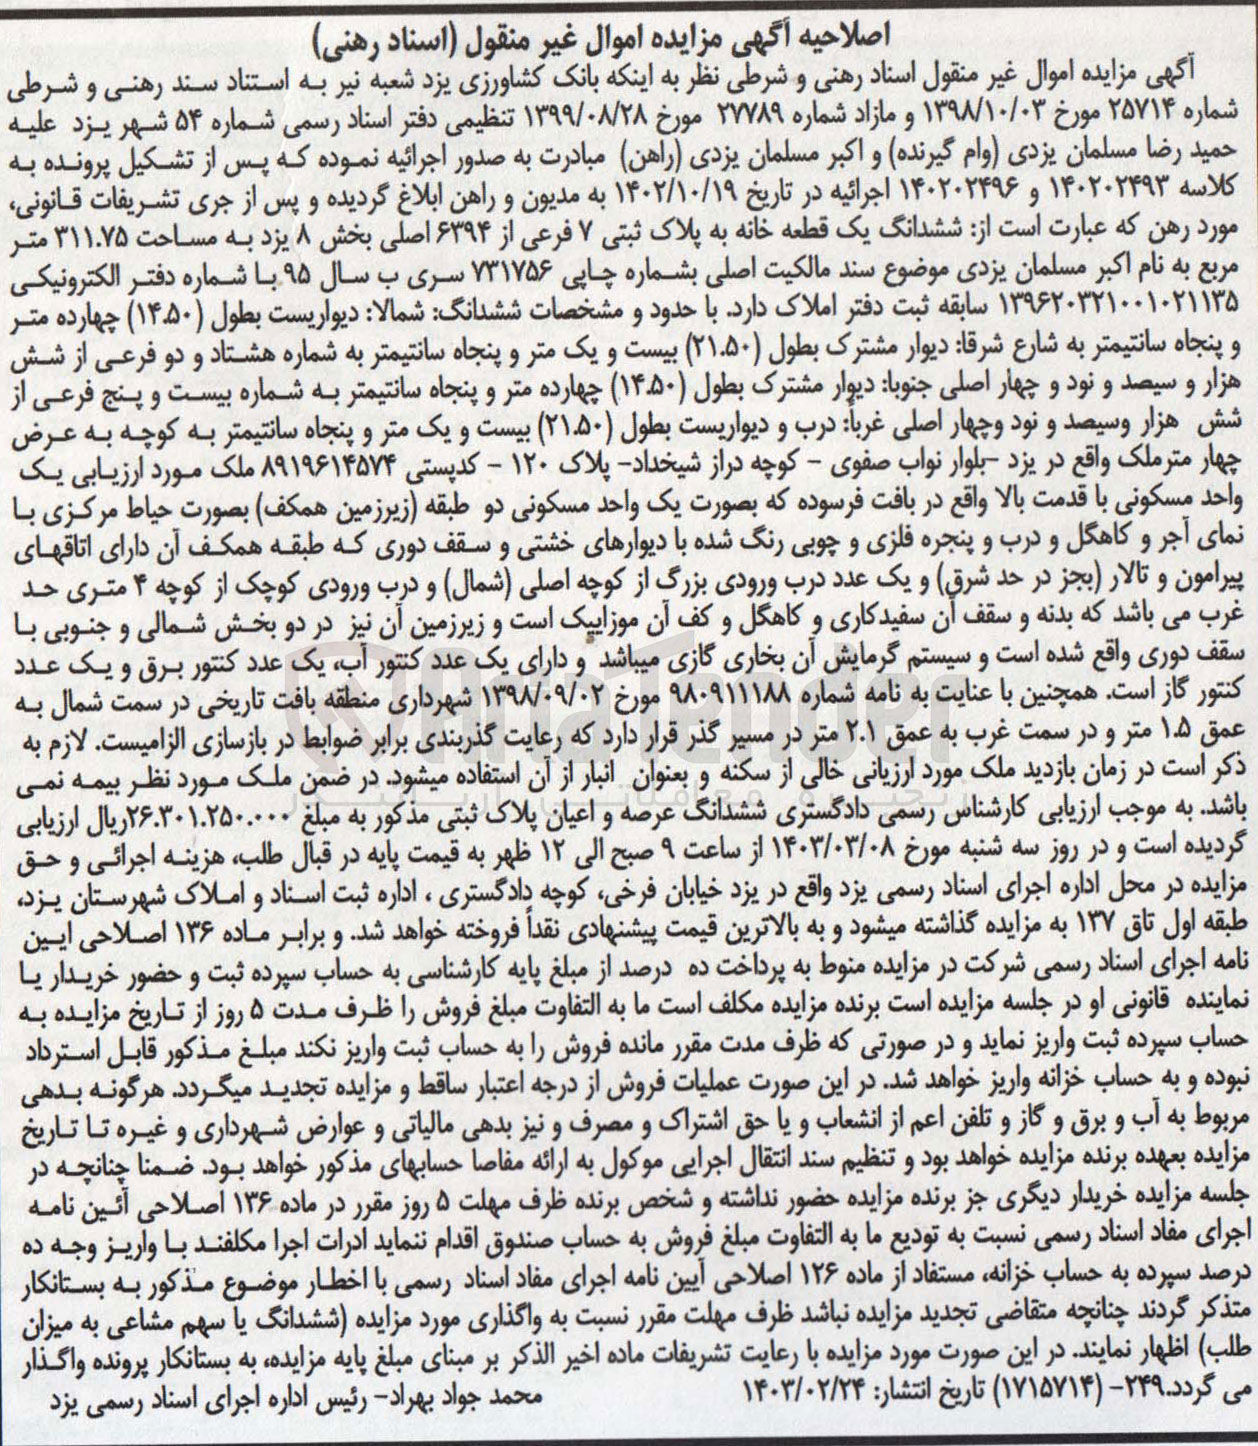 اصلاحیه آگهی مزایده اموال غیر منقول (اسناد رهنی)
آگهی مزایده اموال غیر منقول اسناد رهنی و شرطی نظر به اینکه بانک کشاورزی یزد شعبه نیر به استناد سند رهنی و شرطی
شماره ۲۵۷۱۴ مورخ ۱۳۹۸/۱۰/۰۳ و مازاد شماره ۲۷۷۸۹ مورخ ۱۳۹۹/۰۸/۲۸ تنظیمی دفتر اسناد رسمی شماره ۵۴ شهر یزد علیه
حمید رضا مسلمان یزدی (وام گیرنده) و اکبر مسلمان یزدی (راهن) مبادرت به صدور اجرائیه نموده که پس از تشکیل پرونده به
کلاسه ۱۴۰۲۰۲۴۹۳ و ۱۴۰۲۰۲۴۹۶ اجرائیه در تاریخ ۱۴۰۲/۱۰/۱۹ به مدیون و راهن ابلاغ گردیده و پس از جری تشریفات قانونی،
مورد رهن که عبارت است از: ششدانگ یک قطعه خانه به پلاک ثبتی ۷ فرعی از ۶۳۹۴ اصلی بخش ۸ یزد به مساحت ۳۱۱.۷۵ متر
مربع به نام اکبر مسلمان یزدی موضوع سند مالکیت اصلی بشماره چاپی ۷۳۱۷۵۶ سری ب سال ۹۵ با شماره دفتر الکترونیکی
۱۳۹۶۲۰۳۲۱۰۰۱۰۲۱۱۳۵ سابقه ثبت دفتر املاک دارد. با حدود و مشخصات ششدانگ: شمالا: دیواریست بطول (۱۴.۵۰) چهارده متر
و پنجاه سانتیمتر به شارع شرقا: دیوار مشترک بطول (۲۱.۵۰) بیست و یک متر و پنجاه سانتیمتر به شماره هشتاد و دو فرعی از شش
هزار و سیصد و نود و چهار اصلی جنوبا: دیوار مشترک بطول (۱۴.۵۰) چهارده متر و پنجاه سانتیمتر به شماره بیست و پنج فرعی از
شش هزار وسیصد و نود وچهار اصلی غرباً: درب و دیواریست بطول (۲۱.۵۰) بیست و یک متر و پنجاه سانتیمتر به کوچه به عرض
چهار مترملک واقع در یزد –بلوار نواب صفوی – کوچه دراز شیخداد- پلاک ۱۲۰ – کدپستی ۸۹۱۹۶۱۴۵۷۴ ملک مورد ارزیابی یک
واحد مسکونی با قدمت بالا واقع در بافت فرسوده که بصورت یک واحد مسکونی دو طبقه (زیرزمین همکف) بصورت حیاط مرکزی با
نمای آجر و کاهگل و درب و پنجره فلزی و چوبی رنگ شده با دیوارهای خشتی و سقف دوری که طبقه همکف آن دارای اتاقهای
پیرامون و تالار (بجز در حد شرق) و یک عدد درب ورودی بزرگ از کوچه اصلی (شمال) و درب ورودی کوچک از کوچه ۴ متری حد
غرب می باشد که بدنه و سقف آن سفیدکاری و کاهگل و کف آن موزاییک است و زیرزمین آن نیز در دو بخش شمالی و جنوبی با
سقف دوری واقع شده است و سیستم گرمایش آن بخاری گازی میباشد و دارای یک عدد کنتور آب، یک عدد کنتور برق و یک عدد
کنتور گاز است. همچنین با عنایت به نامه شماره ۹۸۰۹۱۱۱۸۸ مورخ ۱۳۹۸/۰۹/۰۲ شهرداری منطقه بافت تاریخی در سمت شمال به
عمق ۱.۵ متر و در سمت غرب به عمق ۲.۱ متر در مسیر گذر قرار دارد که رعایت گذربندی برابر ضوابط در بازسازی الزامیست. لازم به
ذکر است در زمان بازدید ملک مورد ارزیانی خالی از سکنه و بعنوان انبار از آن استفاده میشود. در ضمن ملک مورد نظر بیمه نمی
باشد. به موجب ارزیابی کارشناس رسمی دادگستری ششدانگ عرصه و اعیان پلاک ثبتی مذکور به مبلغ ۲۶.۳۰۱.۲۵۰.۰۰۰ریال ارزیابی
گردیده است و در روز سه شنبه مورخ ۱۴۰۳/۰۳/۰۸ از ساعت ۹ صبح الی ۱۲ ظهر به قیمت پایه در قبال طلب، هزینه اجرائی و حق
مزایده در محل اداره اجرای اسناد رسمی یزد واقع در یزد خیابان فرخی، کوچه دادگستری ، اداره ثبت اسناد و املاک شهرستان یزد،
طبقه اول تاق ۱۳۷ به مزایده گذاشته میشود و به بالاترین قیمت پیشنهادی نقداً فروخته خواهد شد. و برابر ماده ۱۳۶ اصلاحی ایین
نامه اجرای اسناد رسمی شرکت در مزایده منوط به پرداخت ده درصد از مبلغ پایه کارشناسی به حساب سپرده ثبت و حضور خریدار یا
نماینده قانونی او در جلسه مزایده است برنده مزایده مکلف است ما به التفاوت مبلغ فروش را ظرف مدت ۵ روز از تاریخ مزایده به
حساب سپرده ثبت واریز نماید و در صورتی که ظرف مدت مقرر مانده فروش را به حساب ثبت واریز نکند مبلغ مذکور قابل استرداد
نبوده و به حساب خزانه واریز خواهد شد. در این صورت عملیات فروش از درجه اعتبار ساقط و مزایده تجدید میگردد. هرگونه بدهی
مربوط به آب و برق و گاز و تلفن اعم از انشعاب و یا حق اشتراک و مصرف و نیز بدهی مالیاتی و عوارض شهرداری و غیره تا تاریخ
مزایده بعهده برنده مزایده خواهد بود و تنظیم سند انتقال اجرایی موکول به ارائه مفاصا حسابهای مذکور خواهد بود. ضمنا چنانچه در
جلسه مزایده خریدار دیگری جز برنده مزایده حضور نداشته و شخص برنده ظرف مهلت ۵ روز مقرر در ماده ۱۳۶ اصلاحی آئین نامه
اجرای مفاد اسناد رسمی نسبت به تودیع ما به التفاوت مبلغ فروش به حساب صندوق اقدام ننماید ادرات اجرا مکلفند با واریز وجه ده
درصد سپرده به حساب خزانه، مستفاد از ماده ۱۲۶ اصلاحی آیین نامه اجرای مفاد اسناد رسمی با اخطار موضوع مذکور به بستانکار
متذکر گردند چنانچه متقاضی تجدید مزایده نباشد ظرف مهلت مقرر نسبت به واگذاری مورد مزایده (ششدانگ یا سهم مشاعی به میزان
طلب) اظهار نمایند. در این صورت مورد مزایده با رعایت تشریفات ماده اخیر الذکر بر مبنای مبلغ پایه مزایده، به بستانکار پرونده واگذار
می گردد.۲۴۹- (۱۷۱۵۷۱۴) تاریخ انتشار: ۱۴۰۳/۰۲/۲۴ محمد جواد بهراد- رئیس اداره اجرای اسناد رسمی یزد
AriaTender